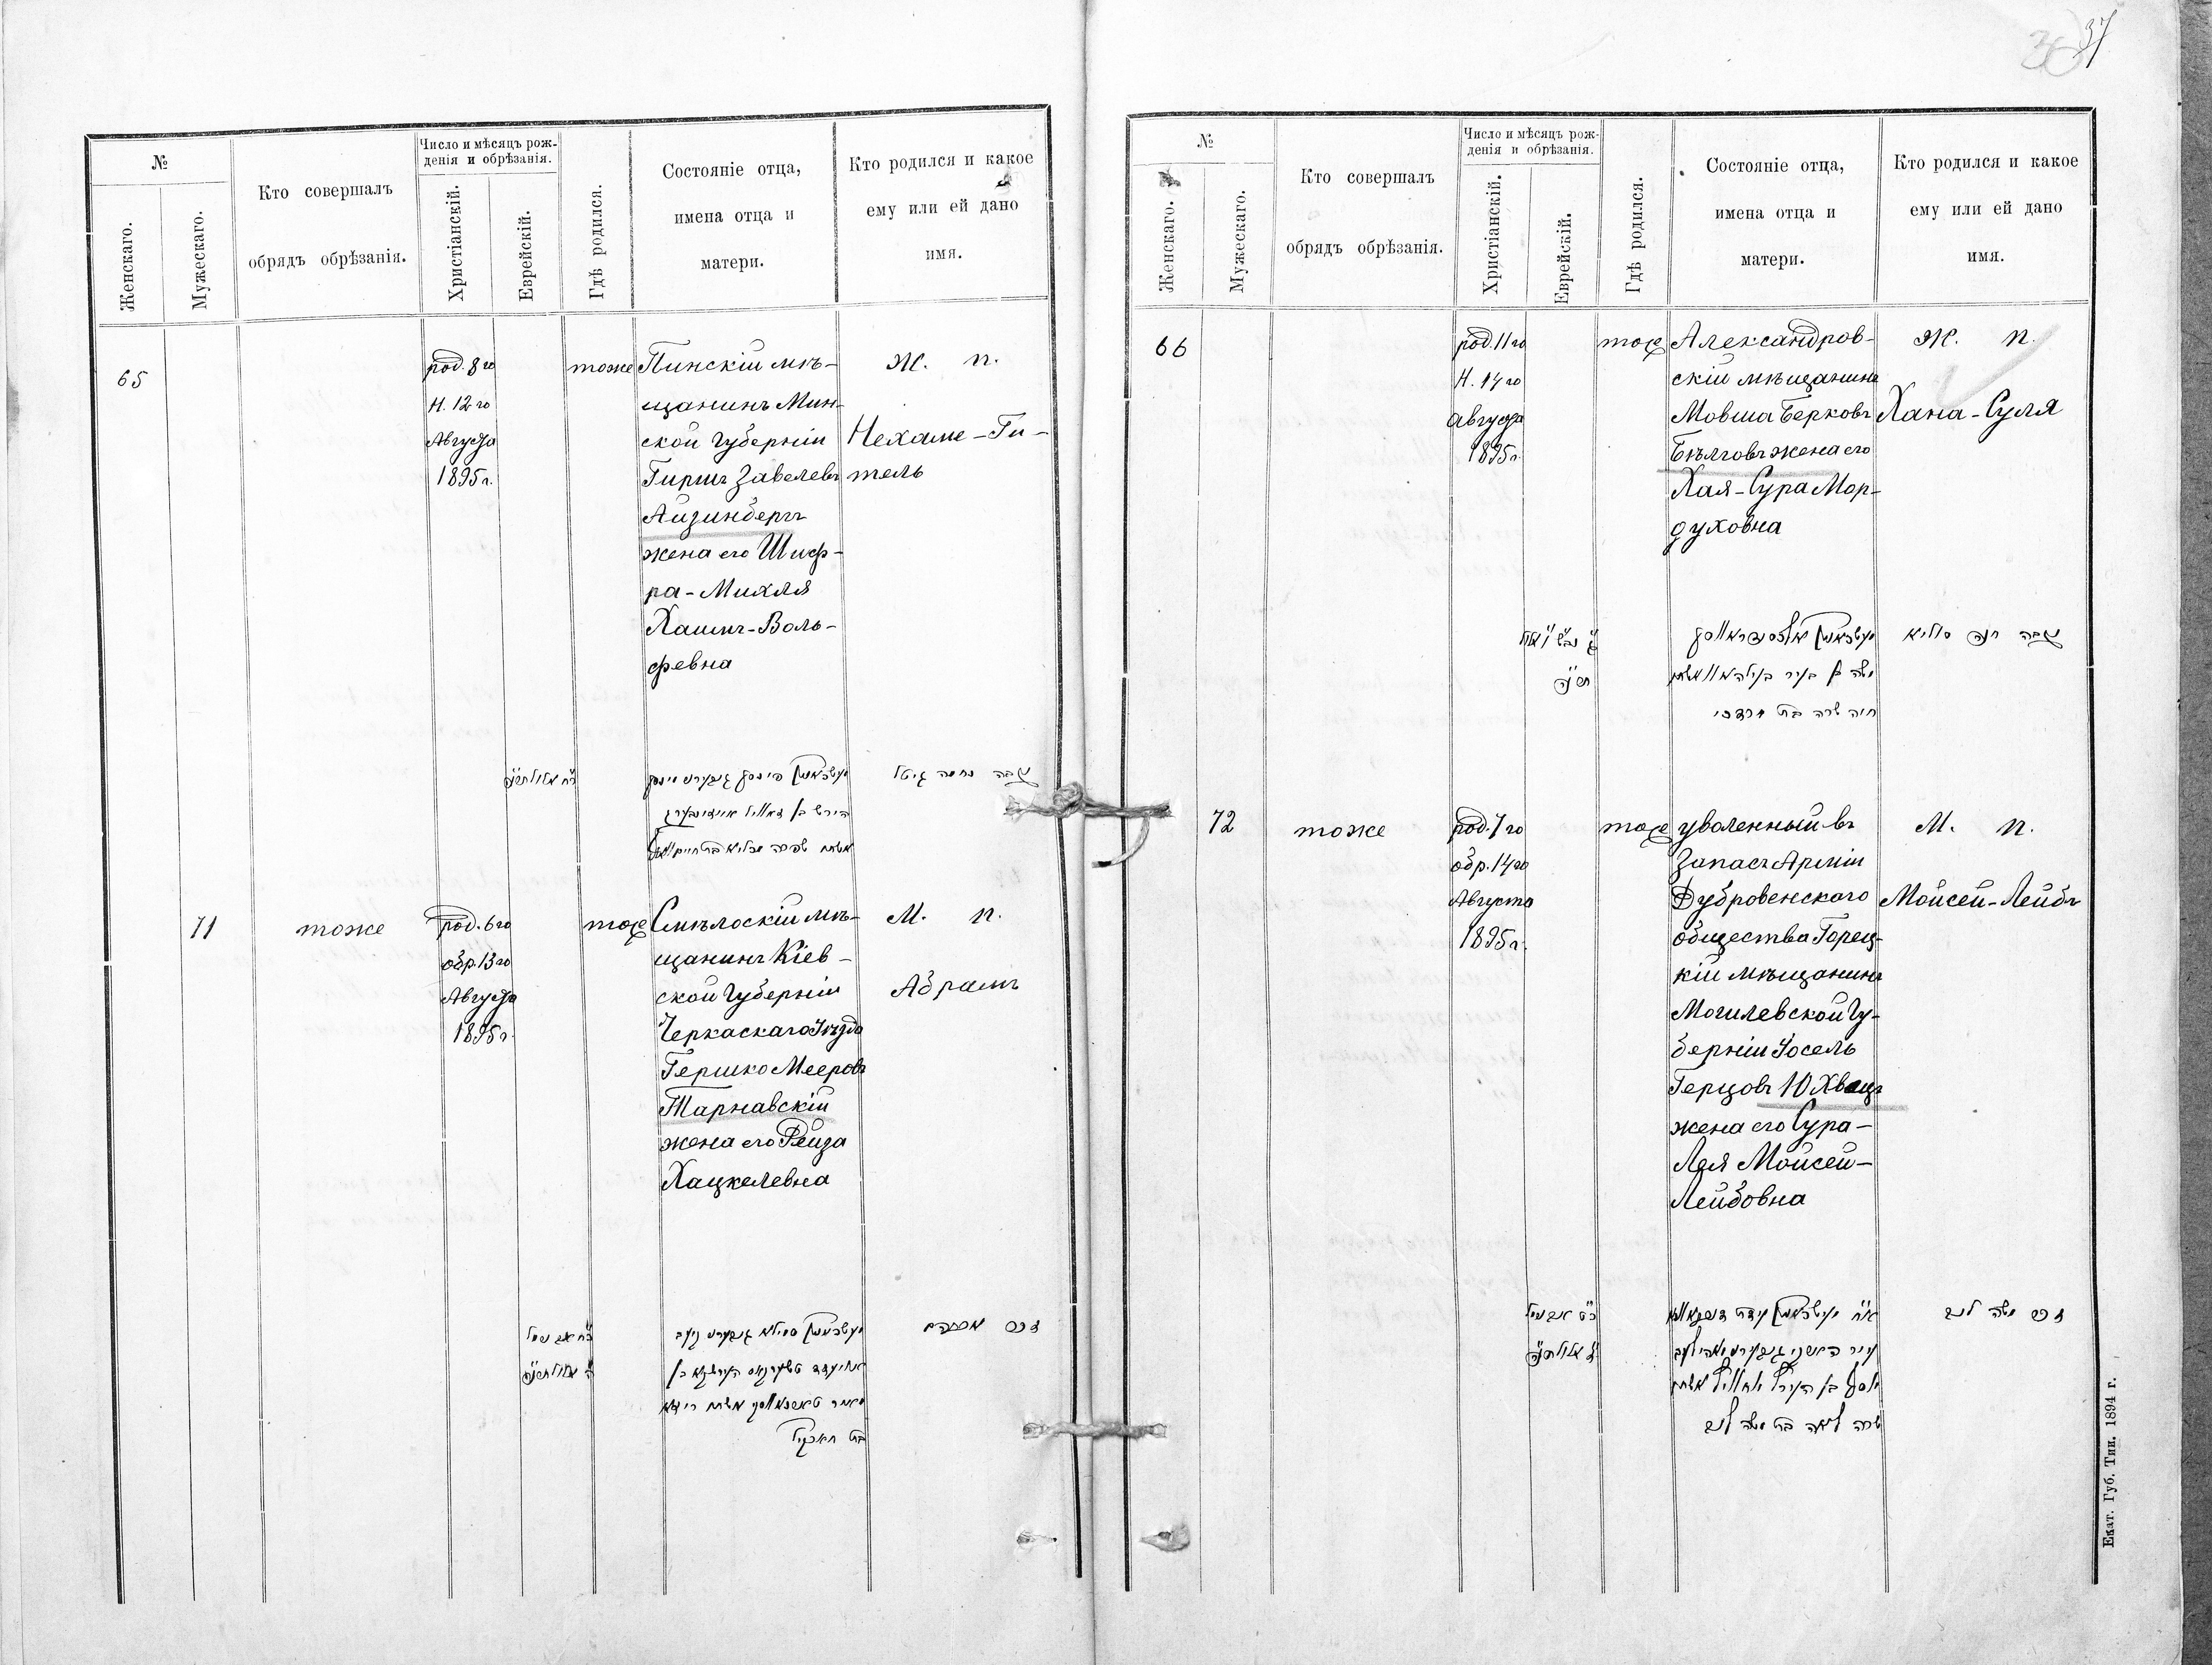 37
№
Женскаго.
Мужескаго.
Кто совершалъ
обрядъ обрѣзанія.
Число и мѣсяцъ рож-
денія и обрѣзанія.
Христіанскій.
Еврейскій.
Гдѣ родился.
Состояніе отца,
имена отца и
матери.
Кто родился и какое
ему или ей дано
имя.
65
род. 8го
Н. 12го
Августа
1895г.
тоже
Пинскій мѣ-
щанинъ Мин-
ской Губерніи
Гиршъ Завелевъ
Айзинбергъ
жена его Шиф-
ра-Михля
Хаимъ-Воль-
февна
Ж. п.
Нехаме-Ги-
тель
נקבה נחמה גיטל
71
тоже
род. 6го
обр. 13го
Августа
1895г.
тоже
Смѣлоскій мѣ-
щанинъ Кіев-
ской Губерніи
Черкаскаго Уѣзда
Гершко Мееровъ
Тарнавскій
жена его Рейза
Хацкелевна
М. п.
Абрамъ
זכר אברהם
№
Женскаго.
Мужескаго.
Кто совершалъ
обрядъ обрѣзанія.
Число и мѣсяцъ рож-
денія и обрѣзанія.
Христіанскій.
Еврейскій.
Гдѣ родился.
Состояніе отца,
имена отца и
матери.
Кто родился и какое
ему или ей дано
имя.
66
род. 11го
Н. 14го
августа
1895г.
тоже
Александров-
скій мѣщанинъ
Мовша Берковъ
Бѣлговъ жена его
Хая-Сура Мор-
духовна
Ж. п.
Хана-Суля
חיה שרה בת מרדכי
נקבה חנה סוליא
72
тоже
род. 7го
обр. 14го
Августа
1895г.
тоже
уволенный въ
Запасъ Арміи
Дубровенскаго
общества Горец-
кій мѣщанинъ
Могилевской Гу-
берніи Іосель
Герцовъ Юхвецъ
жена его Сура-
Лея Мойсей-
Лейбовна
М. п.
Мойсей-Лейбъ
שרה לאה בת משה ליב
זכר משה ליב
Екат. Губ. Тип. 1894 г.